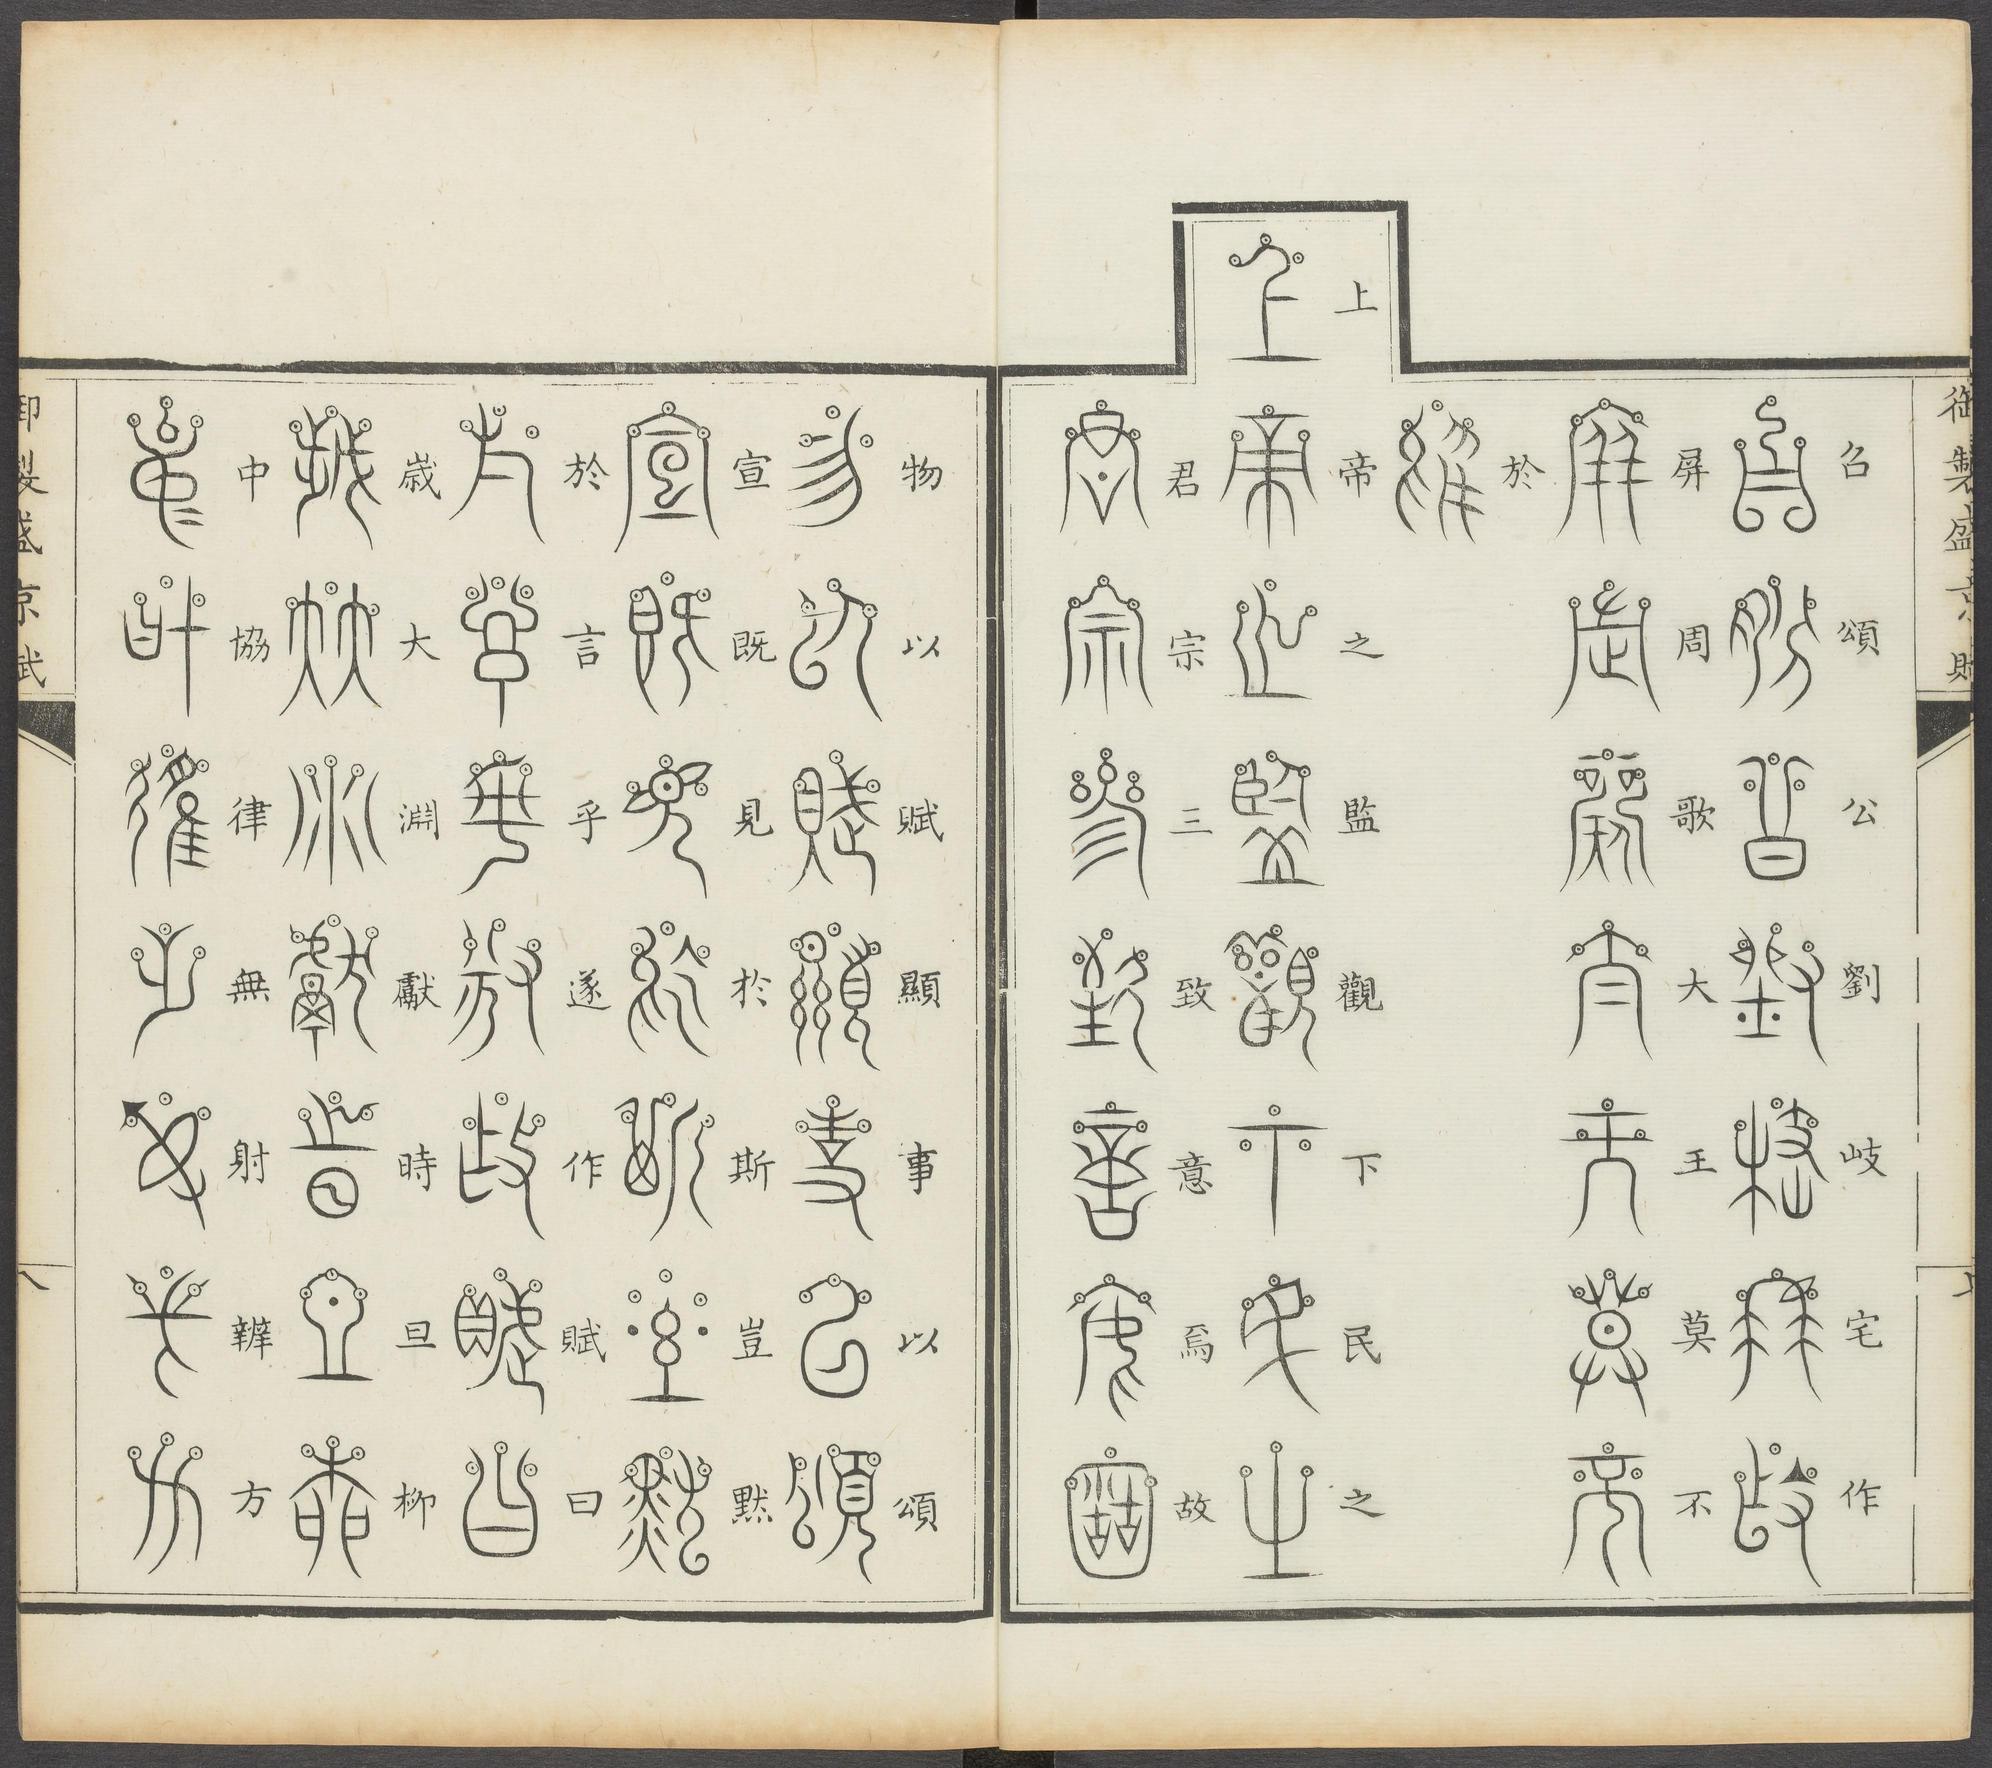 御製盛京賦
召頌公劉岐宅作
屏周歌大王莫不
於
上帝之監觀下民之
君宗三致意焉故
物以賦顯事以頌
宣既見於斯豈黙
於言乎遂作賦曰
歲大淵獻時旦柳
中協律無射辨方
御製盛京賦
八